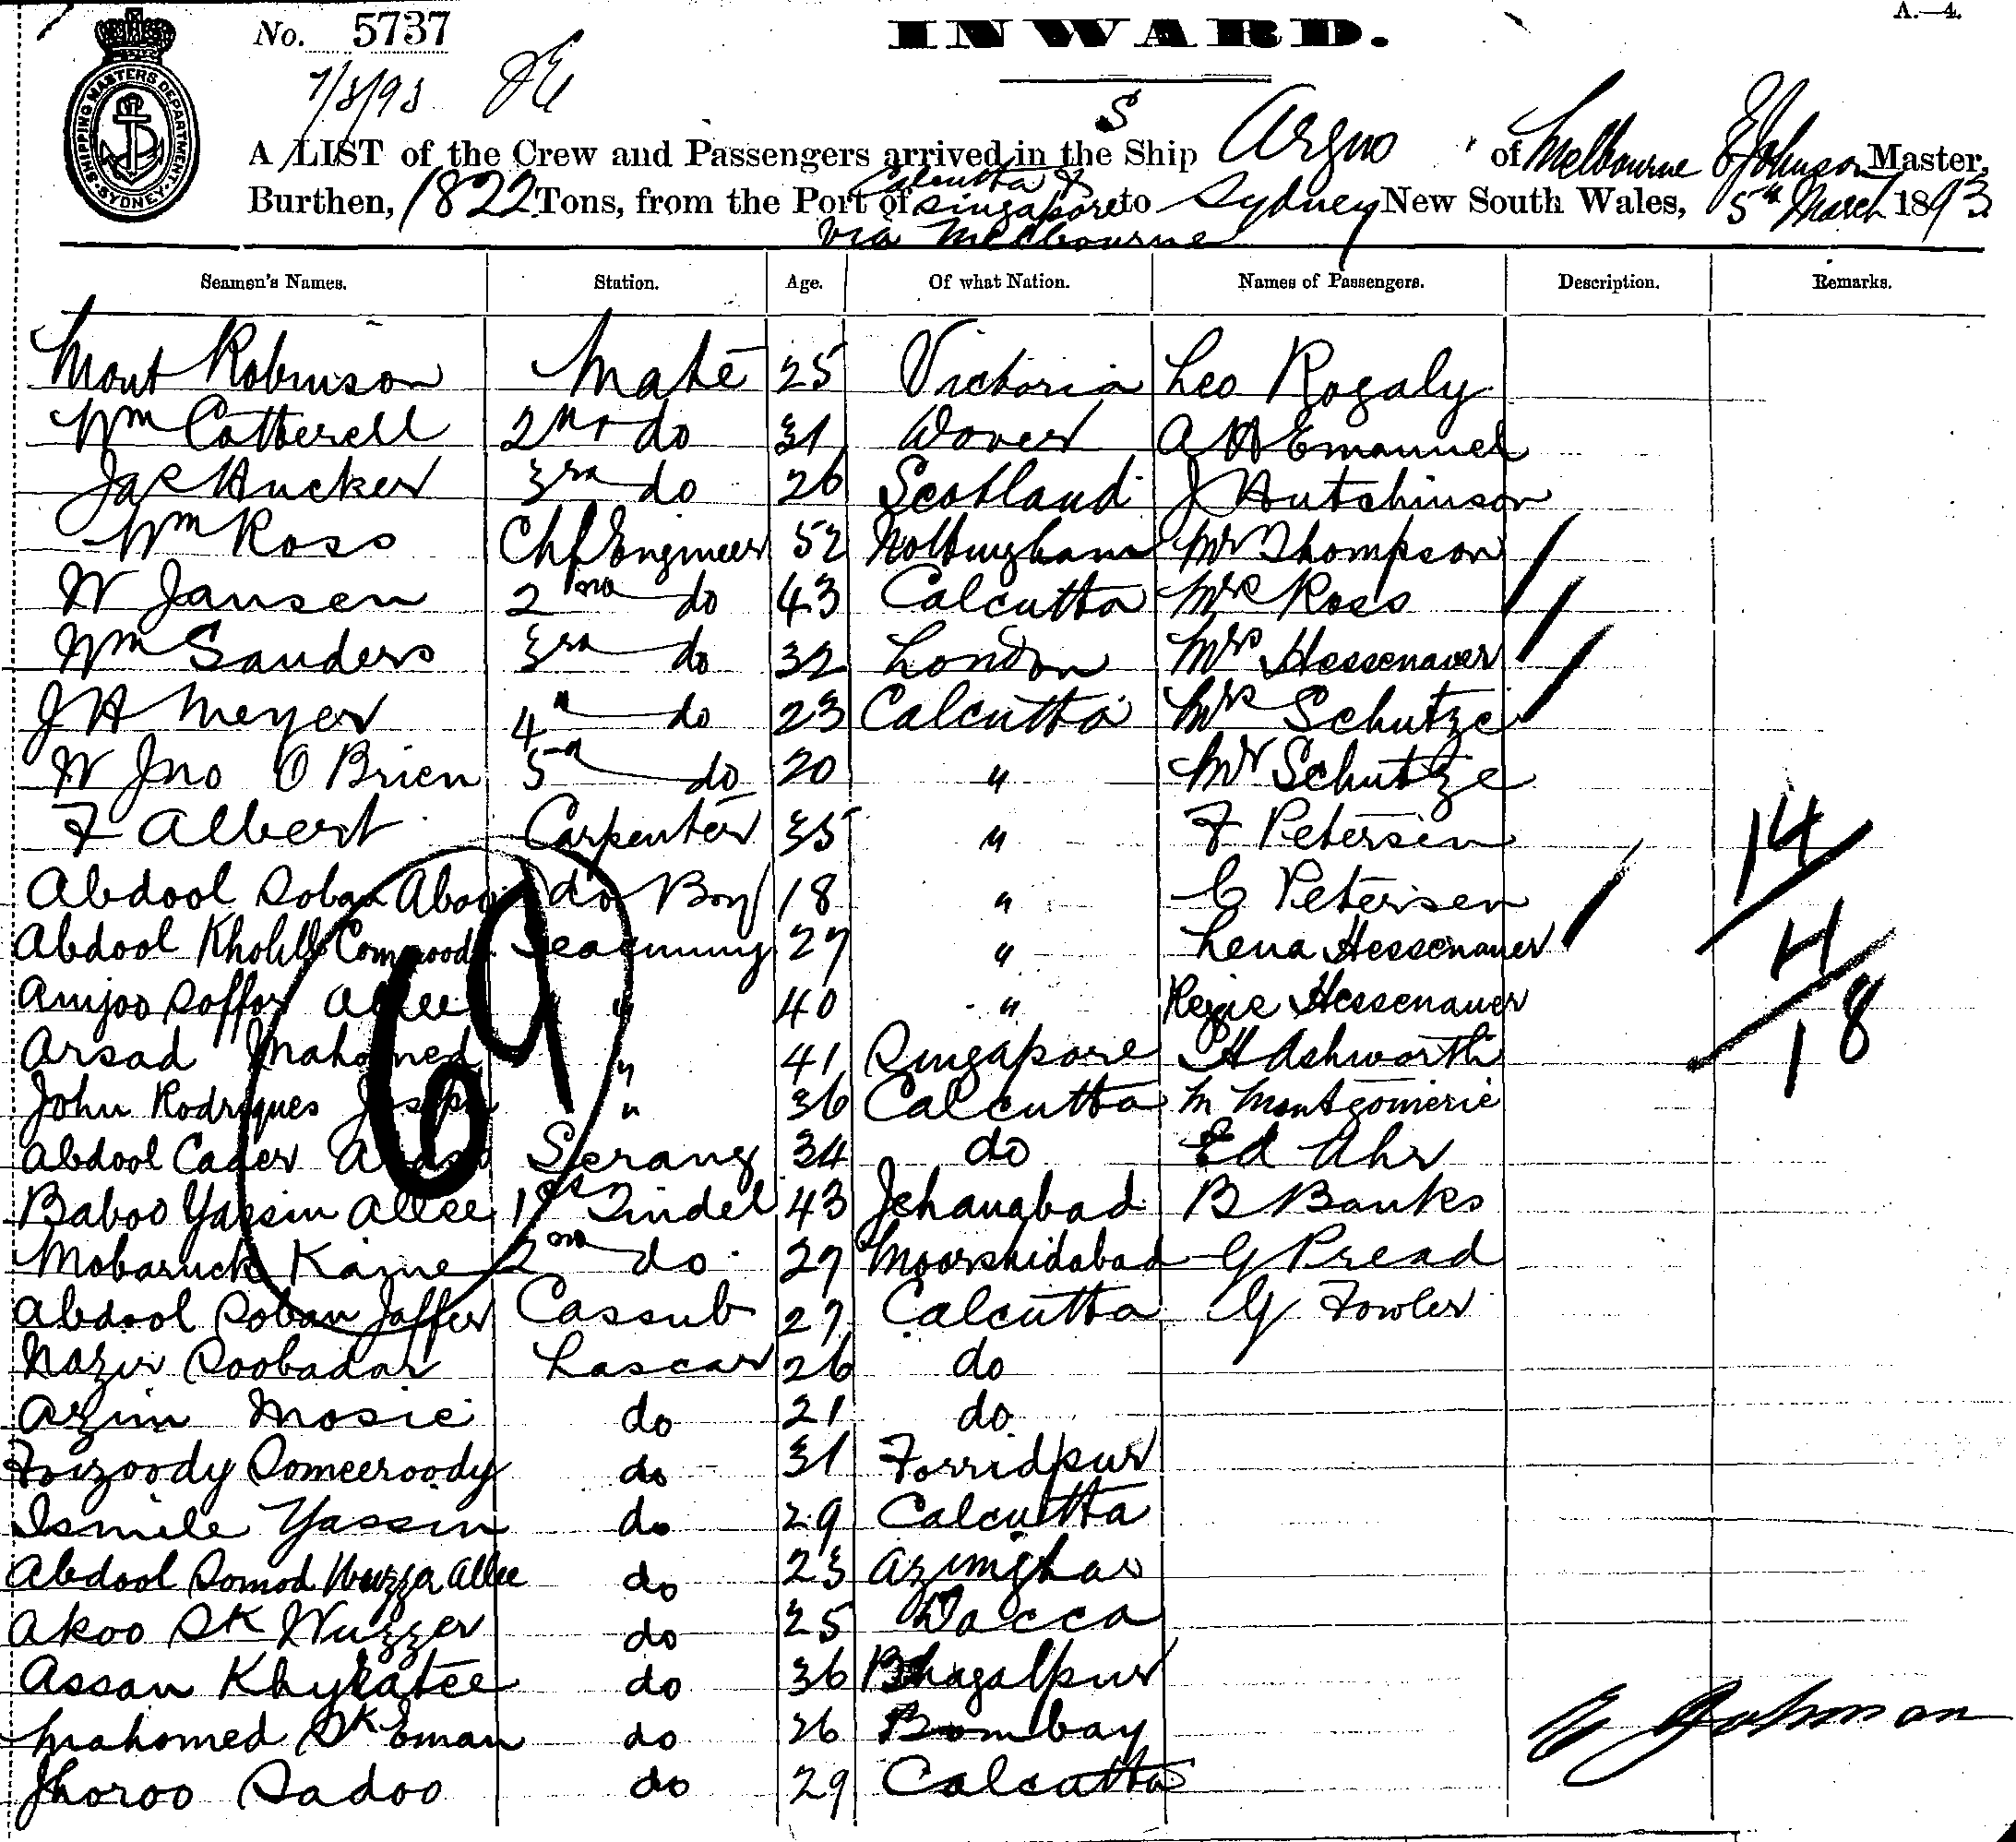 A.—4.
No. 5737
INWARD.
7/3/93
SHIPPING MASTERS DEPARTMENT SYDNEY
S
A LIST of the Crew and Passengers arrived in the Ship Argus of Melbourne E Johnson Master,
Calcutta &
Burthen, 1822 Tons, from the Port of Singapore to Sydney New South Wales, 5th March 1893
via Melbourne
Seamen's Names. Station. Age. Of what Nation. Names of Passengers. Description. Remarks.
Mont Robinson Mate 25 Victoria Leo Rogaly
Wm Cotterell 2nd do 31 Dover A W Emanuel
Jas Hucker 3rd do 26 Scotland J Hutchinson
Wm Ross Chf Engineer 52 Nottingham Mr Thompson
W Jansen 2nd do 43 Calcutta Mrs Ross
Wm Sanders 3rd do 32 London Mrs Hessenauer
J H Meyer 4th do 23 Calcutta Mrs Schutze
W Jno O'Brien 5th do 20 " Mr Schutze
F Albert Carpenter 35 " F Petersen
Abdool Soban do Boy 18 " C Petersen
Abdool Seacunny 27 " Lena Hessenauer
Amjoo Soffor Allee " 40 " Hessenauer
Arsad Mahomed " 41 Singapore H Ashworth
John Rodriques Joseph " 36 Calcutta M Montgomerie
Abdool Cader Serang 34 do Ed Uhr
Baboo Yassin Allee 1st Tindel 43 Jehanabad B Banks
Mobaruck 2nd do 27 Moorshidabad G Pread
Abdool Soban Jaffer Cassub 27 Calcutta G Fowler
Nazir Soobadar Lascar 26 do
Azim Mosie do 21 do
Foizoody Someeroody do 31 Forridpur
Ismile Yassin do 29 Calcutta
Abdool Somod Wuzzer Allee do 23 Azimghar
Akoo Sk Wuzzer do 25 Dacca
Assan Khyratee do 36 Bhagalpur
Mahomed Sk Eman do 26 Bombay
Jhoroo Sadoo do 29 Calcutta
69
14
4
18
E Johnson